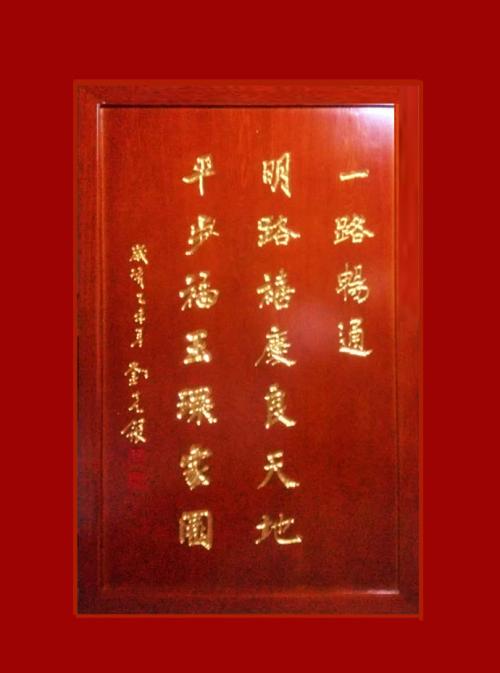 一路暢通
明路禧慶良天地
平步福玉環家園
歲乙未